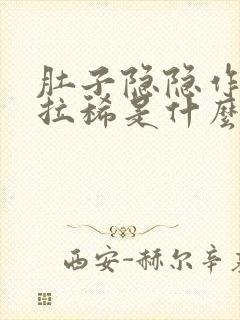 肚子隐隐作
拉稀是什麽
西安-赫尔辛